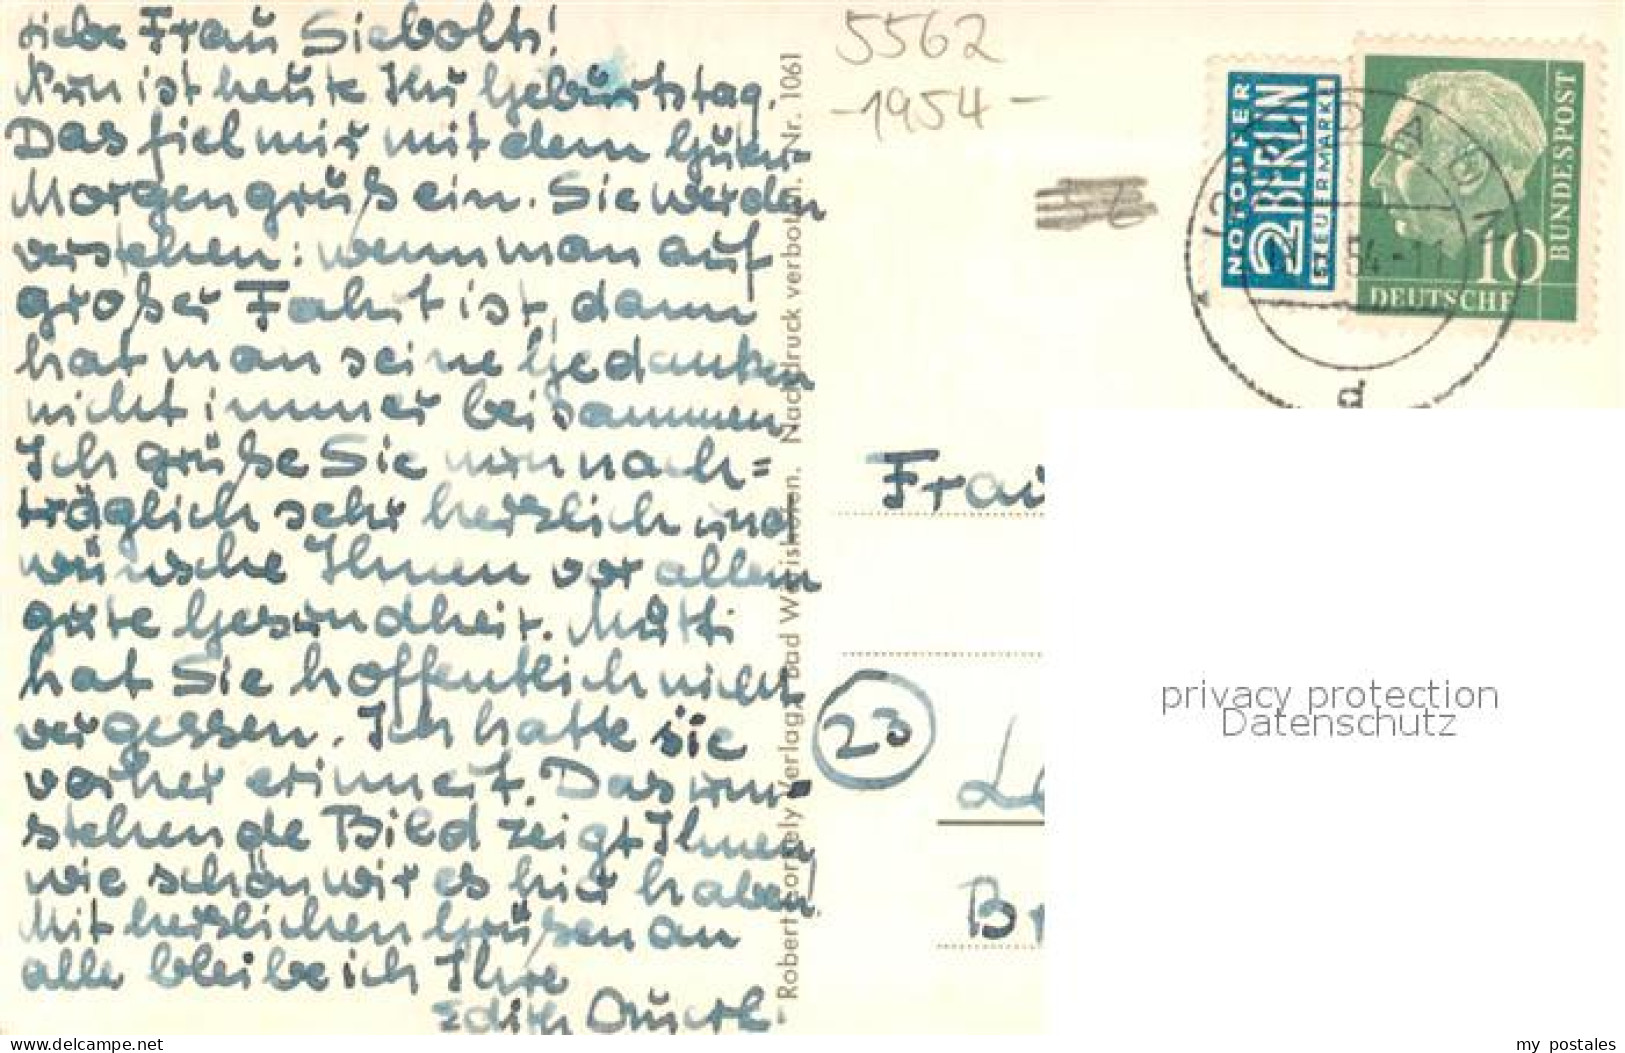 Liebe Frau Siebolts!
Nun ist heute Ihr Geburtstag.
Das fiel mir mit dem Guten-
Morgengruß ein. Sie werden
verstehen: wenn man auf
großer Fahrt ist, dann
hat man seine Gedanken
nicht immer beisammen.
Ich grüße Sie nun nach=
träglich sehr herzlich und
wünsche Ihnen vor allem
gute Gesundheit. Mutti
hat Sie hoffentlich nicht
vergessen. Ich hatte sie
vorher erinnert. Das um-
stehende Bild zeigt Ihnen,
wie schön wir es hier haben!
Mit herzlichen Grüßen an
alle bleibe ich Ihre
Edith
Nachdruck verboten. Nr. 1061
Verlag, Bad Wörishofen.
5562
-1954-
NOTOPFER
2 BERLIN
STEUERMARKE
DEUTSCHE
BUNDESPOST
10
54.-11
Frau
23
privacy protection
Datenschutz
www.delcampe.net
my_postales